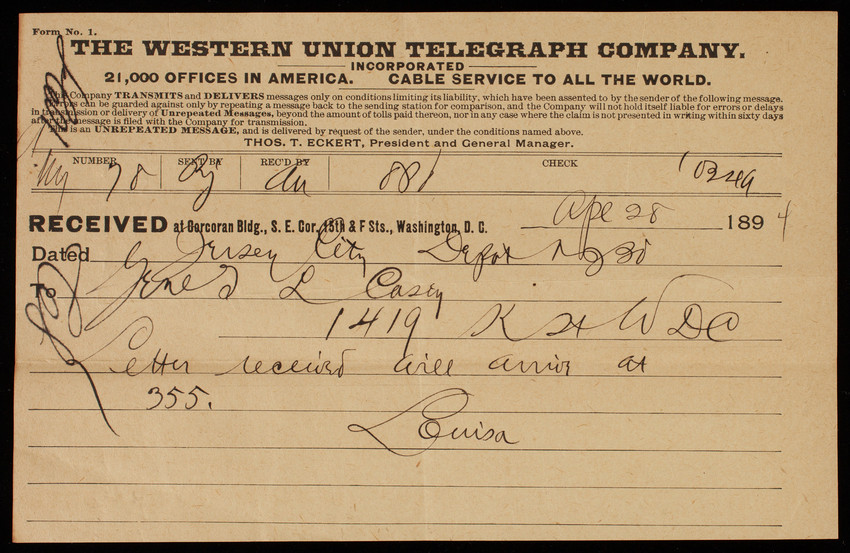 Form No. 1.
THE WESTERN UNION TELEGRAPH COMPANY.
INCORPORATED
21,000 OFFICES IN AMERICA. CABLE SERVICE TO ALL THE WORLD.
This Company TRANSMITS and DELIVERS messages only on conditions limiting its liability, which have been assented to by the sender of the following message.
Errors can be guarded against only by repeating a message back to the sending station for comparison, and the Company will not hold itself liable for errors or delays
in transmission or delivery of Unrepeated Messages, beyond the amount of tolls paid thereon, nor in any case where the claim is not presented in writing within sixty days
after the message is filed with the Company for transmission.
This is an UNREPEATED MESSAGE, and is delivered by request of the sender, under the conditions named above.
THOS. T. ECKERT, President and General Manager.
NUMBER SENT BY REC'D BY CHECK
78
RECEIVED at Corcoran Bldg., S. E. Cor. 15th & F Sts., Washington, D. C. Ape 28 1894
Dated Jersey City Depot NJ 28
To Genl T L Casey
1419 K St W DC
Letter received will arrive at
355.
Louisa